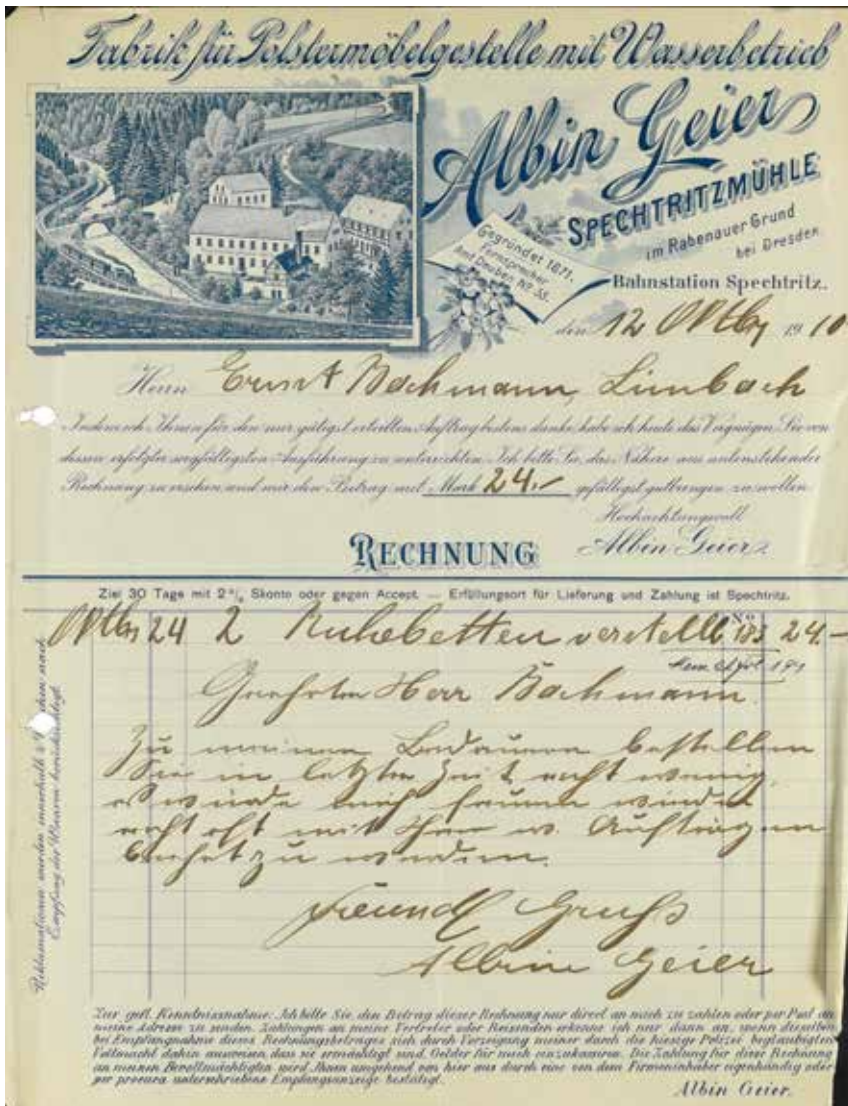 Fabrik für Polstermöbelgestelle mit Wasserbetrieb
Albin Geier
SPECHTRITZMÜHLE
im Rabenauer Grund
bei Dresden
Gegründet 1871.
Fernsprecher
Amt Deuben No 35.
Bahnstation Spechtritz.
den 12 Oktbr 1910
Herrn Ernst Bachmann, Limbach
Indem ich Ihnen für den mir gütigst erteilten Auftrag bestens danke, habe ich heute das Vergnügen Sie von
dessen erfolgter sorgfältigsten Ausführung zu unterrichten. Ich bitte Sie, das Nähere aus untenstehender
Rechnung zu ersehen und mir den Betrag mit Mark 24.- gefälligst gutbringen zu wollen
Hochachtungsvoll
Albin Geier
RECHNUNG
Ziel 30 Tage mit 2% Skonto oder gegen Accept. — Erfüllungsort für Lieferung und Zahlung ist Spechtritz.
Oktbr 24 2 Ruhebetten verstellb No 183 24.-
Geehrter Herr Bachmann.
Zu meinem Bedauern bestellen
Sie in letzter Zeit recht wenig,
es würde mich freuen wieder
recht oft mit Ihren w. Aufträgen
beehrt zu werden.
Freundl Gruß
Albin Geier
Reklamationen werden innerhalb 3 nach
Empfang der Waaren berücksichtigt.
Zur gefl. Kenntnissnahme. Ich bitte Sie, den Betrag dieser Rechnung nur direct an mich zu zahlen oder per Post an
meine Adresse zu senden. Zahlungen an meine Vertreter oder Reisenden erkenne ich nur dann an, wenn dieselben
bei Empfangnahme dieses Rechnungsbetrages sich durch Vorzeigung meiner durch die hiesige Polizei beglaubigten
Vollmacht dahin ausweisen dass sie ermächtigt sind, Gelder für mich einzukassiren. Die Zahlung für diese Rechnung
an meinen Bevollmächtigten wird Ihnen umgehend von hier aus durch eine von dem Firmeninhaber eigenhändig oder
per procura unterschriebene Empfangsanzeige bestätigt.
Albin Geier.